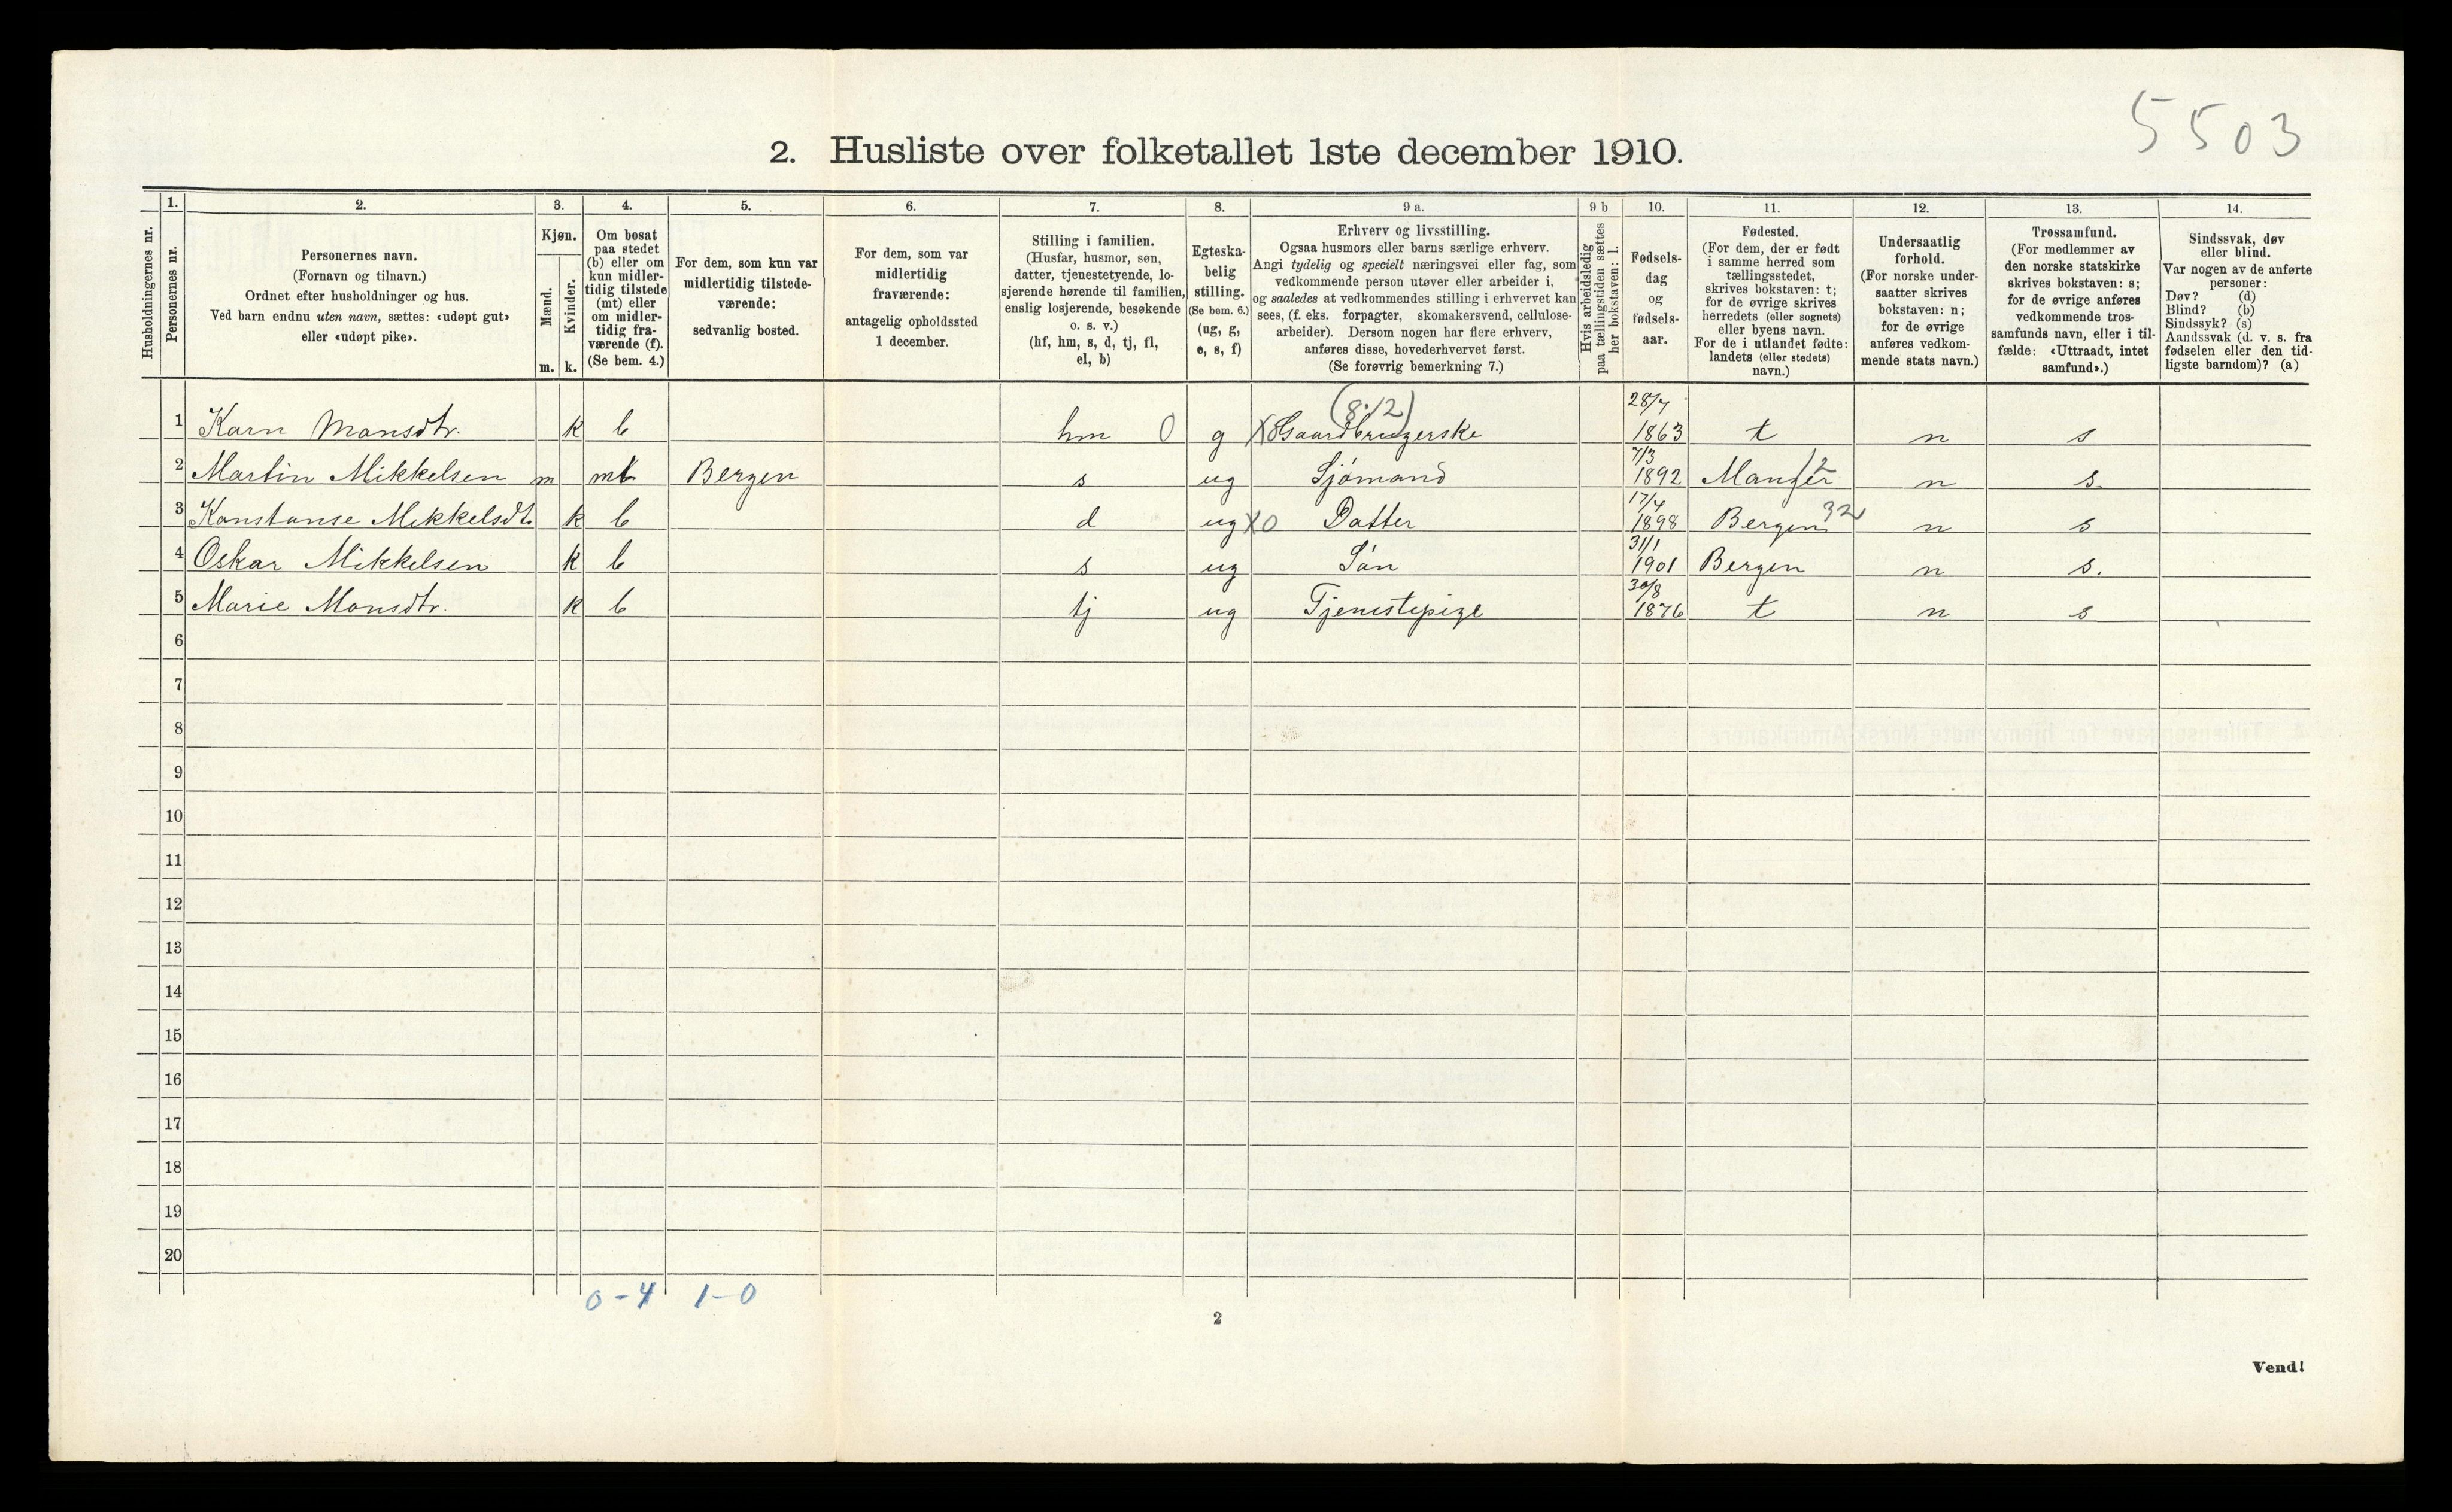 5503
2. Husliste over folketallet 1ste december 1910.
Husholdningernes nr.
1.
Personernes nr.
2.
Personernes navn.
(Fornavn og tilnavn.)
Ordnet efter husholdninger og hus.
Ved barn endnu uten navn, sættes: «udøpt gut»
eller «udøpt pike».
3.
Kjøn.
Mænd.
Kvinder.
m. k.
4.
Om bosat
paa stedet
(b) eller om
kun midler-
tidig tilstede
(mt) eller
om midler-
tidig fra-
værende (f).
(Se bem. 4.)
5.
For dem, som kun var
midlertidig tilstede-
værende:
sedvanlig bosted.
6.
For dem, som var
midlertidig
fraværende:
antagelig opholdssted
1 december.
7.
Stilling i familien.
(Husfar, husmor, søn,
datter, tjenestetyende, lo-
sjerende hørende til familien,
enslig losjerende, besøkende
o. s. v.)
(hf, hm, s, d, tj, fl,
el, b)
8.
Egteska-
belig
stilling.
(Se bem. 6.)
(ug, g,
e, s, f)
9 a.
Erhverv og livsstilling.
Ogsaa husmors eller barns særlige erhverv.
Angi tydelig og specielt næringsvei eller fag, som
vedkommende person utøver eller arbeider i,
og saaledes at vedkommendes stilling i erhvervet kan
sees, (f. eks. forpagter, skomakersvend, cellulose-
arbeider). Dersom nogen har flere erhverv,
anføres disse, hovederhvervet først.
(Se forøvrig bemerkning 7.)
9 b
Hvis arbeidsledig
paa tællingstiden sættes
her bokstaven: l.
10.
Fødsels-
dag
og
fødsels-
aar.
11.
Fødested.
(For dem, der er født
i samme herred som
tællingsstedet,
skrives bokstaven: t;
for de øvrige skrives
herredets (eller sognets)
eller byens navn.
For de i utlandet fødte:
landets (eller stedets)
navn.)
12.
Undersaatlig
forhold.
(For norske under-
saatter skrives
bokstaven: n;
for de øvrige
anføres vedkom-
mende stats navn.)
13.
Trossamfund.
(For medlemmer av
den norske statskirke
skrives bokstaven: s;
for de øvrige anføres
vedkommende tros-
samfunds navn, eller i til-
fælde: «Uttraadt, intet
samfund».)
14.
Sindssvak, døv
eller blind.
Var nogen av de anførte
personer:
Døv? (d)
Blind? (b)
Sindssyk? (s)
Aandssvak (d. v. s. fra
fødselen eller den tid-
ligste barndom)? (a)
1 Karn Monsdtr. k b hm 0 g X Gaardbrugerske (8·12) 28/7 1863 t n s
2 Martin Mikkelsen m mt Bergen s ug Sjómand 7/3 1892 Manger 12 n s.
3 Konstanse Mikkelsdt. k b d ug X0 Datter 17/4 1898 Bergen 32 n s
4 Oskar Mikkelsen k b s ug Són 31/1 1901 Bergen n s.
5 Marie Monsdtr. k b tj ug Tjenestepige 30/8 1876 t n s
6
7
8
9
10
11
12
13
14
15
16
17
18
19
20
0-4 1-0
2
Vend!